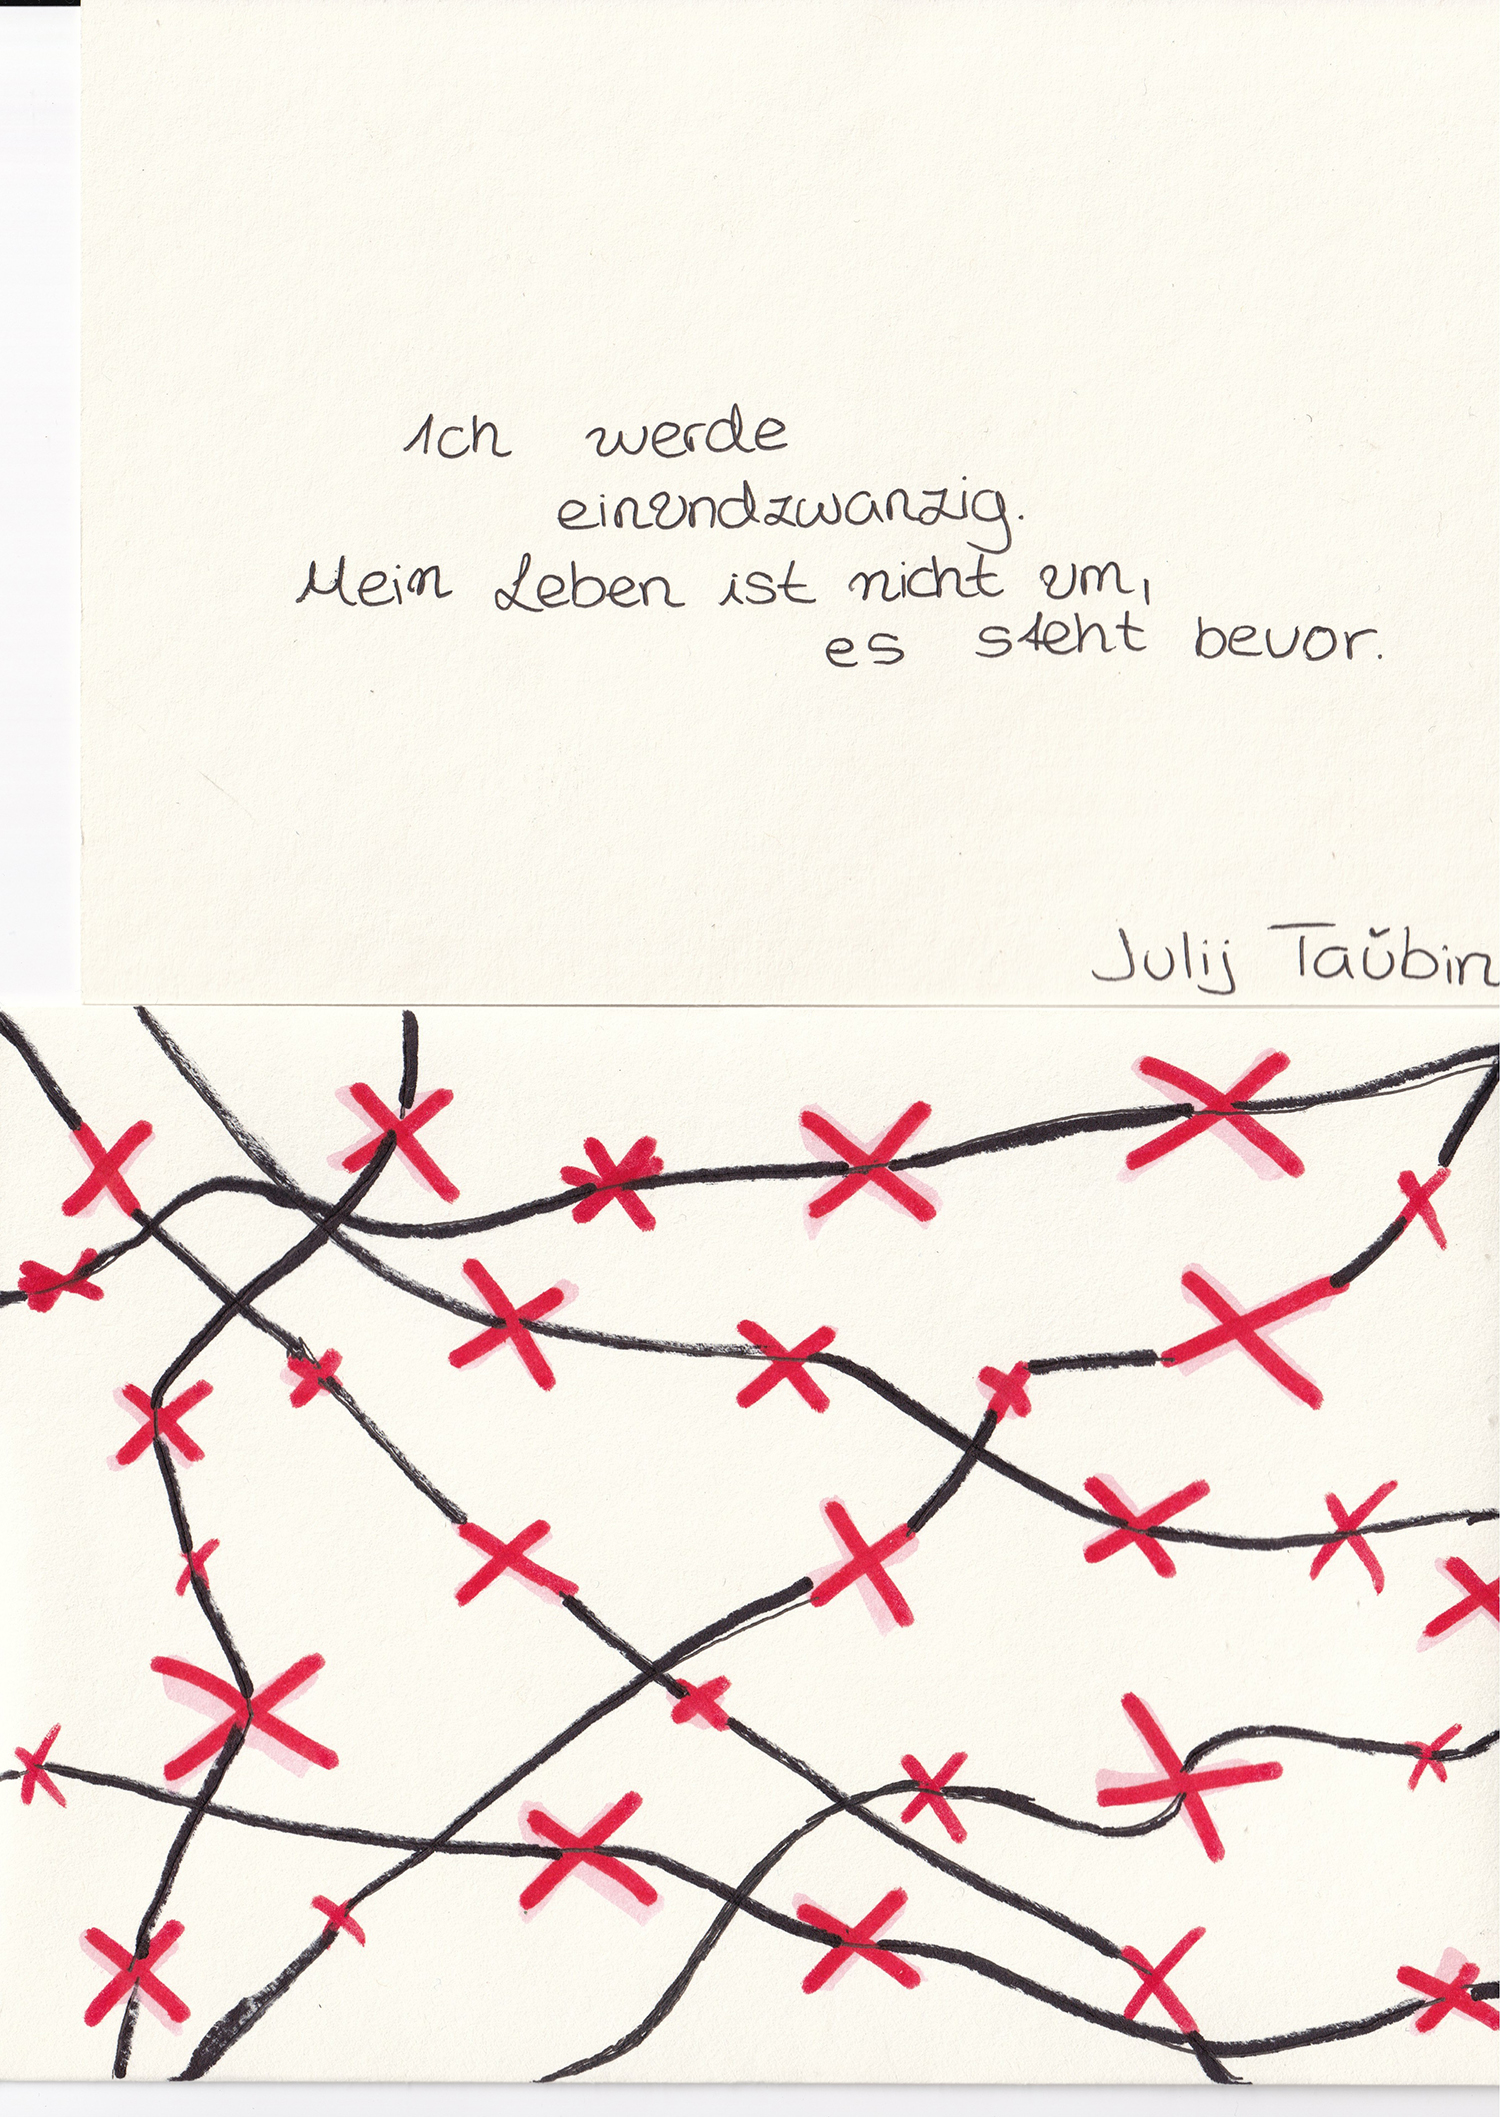 Ich werde
einundzwanzig.
Mein Leben ist nicht um,
es steht bevor.
Julij Taŭbin